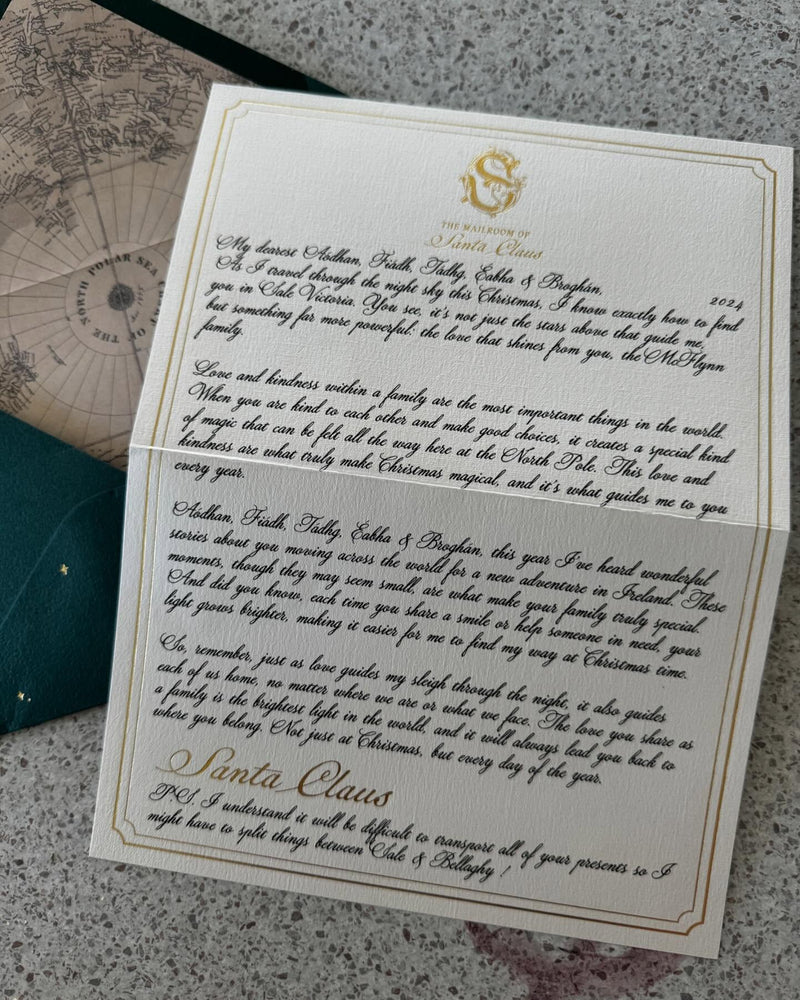 THE NORTH POLAR SEA
S
THE MAILROOM OF
Santa Claus
2024
My dearest Aodhan, Fiádh, Tádhg, Eabha & Broghán,
As I travel through the night sky this Christmas, I know exactly how to find
you in Sale Victoria. You see, it's not just the stars above that guide me,
but something far more powerful: the love that shines from you, the McFlynn
family.
Love and kindness within a family are the most important things in the world.
When you are kind to each other and make good choices, it creates a special kind
of magic that can be felt all the way here at the North Pole. This love and
kindness are what truly make Christmas magical, and it's what guides me to you
every year.
Aodhan, Fiádh, Tádhg, Eabha & Broghán, this year I've heard wonderful
stories about you moving across the world for a new adventure in Ireland. These
moments, though they may seem small, are what make your family truly special.
And did you know, each time you share a smile or help someone in need, your
light grows brighter, making it easier for me to find my way at Christmas time.
So, remember, just as love guides my sleigh through the night, it also guides
each of us home, no matter where we are or what we face. The love you share as
a family is the brightest light in the world, and it will always lead you back to
where you belong. Not just at Christmas, but every day of the year.
Santa Claus
P.S. I understand it will be difficult to transport all of your presents so I
might have to split things between Sale & Bellaghy !